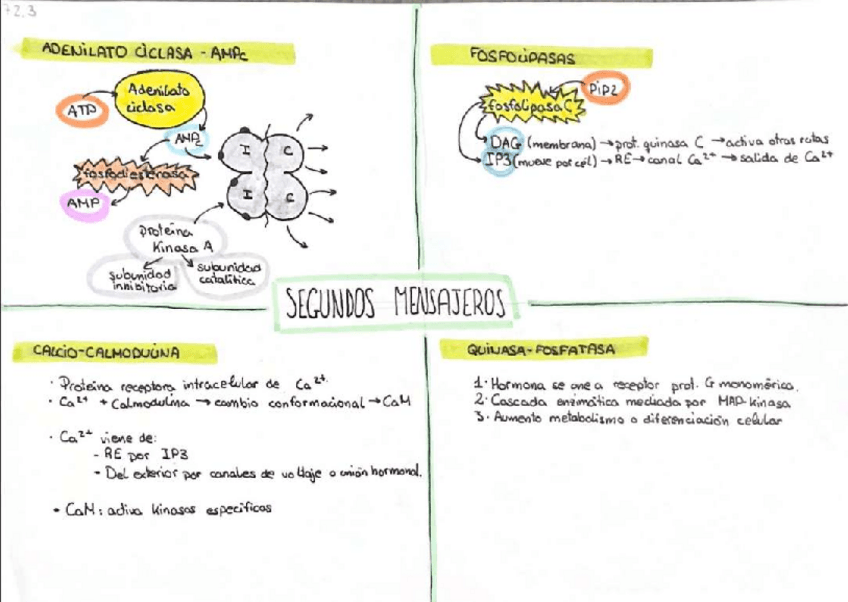 T2.3
ADENILATO CICLASA - AMPc
ATP
Adenilato
ciclasa
AMPc
fosfodiesterasa
AMP
I C
I C
proteína
Kinasa A
subunidad
inhibitoria
subunidad
catalítica
FOSFOLIPASAS
PIP2
fosfolipasa C
DAG (membrana) → prot. quinasa C → activa otras rutas
IP3 (mueve por cél) → RE → canal Ca2+ → salida de Ca2+
SEGUNDOS MENSAJEROS
CALCIO-CALMODULINA
· Proteína receptora intracelular de Ca2+
· Ca2+ + Calmodulina → cambio conformacional → CaM
· Ca2+ viene de:
- RE por IP3
- Del exterior por canales de voltaje o unión hormonal.
- CaM: activa kinasas específicas
QUINASA-FOSFATASA
1· Hormona se une a receptor prot. G monomérica.
2· Cascada enzimática mediada por MAP-kinasa
3· Aumento metabolismo o diferenciación celular